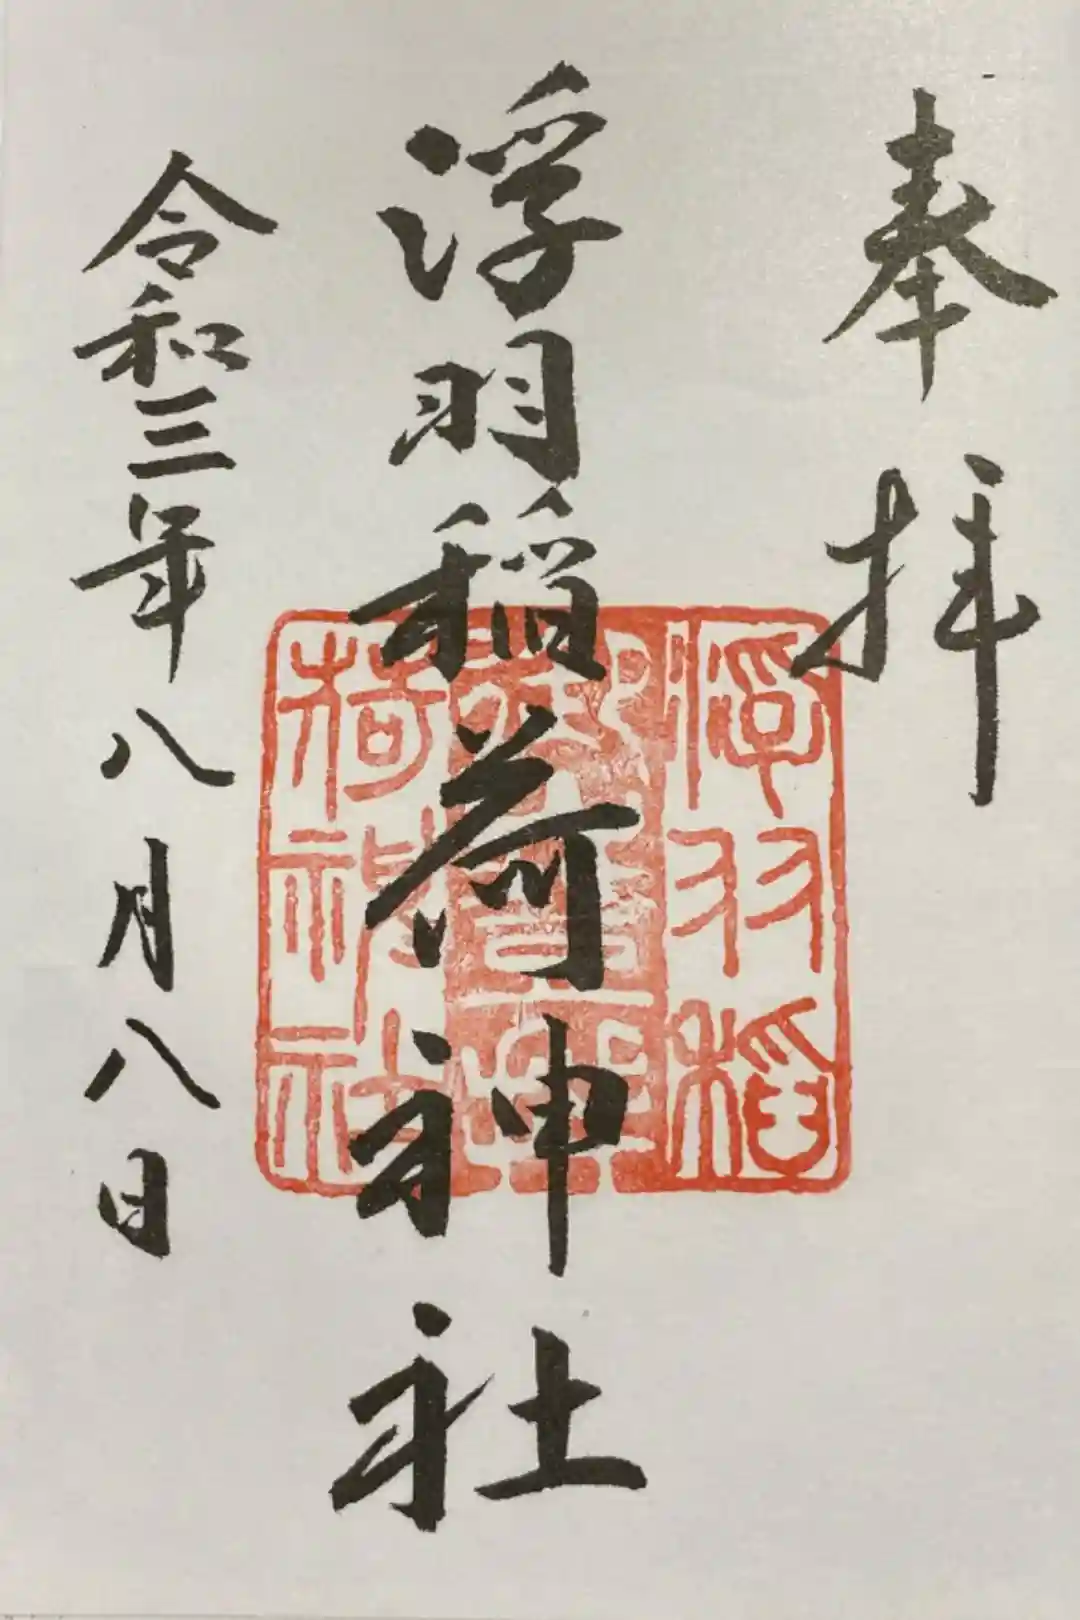 奉拝
浮羽稲荷神社
令和三年八月八日
浮羽稲
荷神社